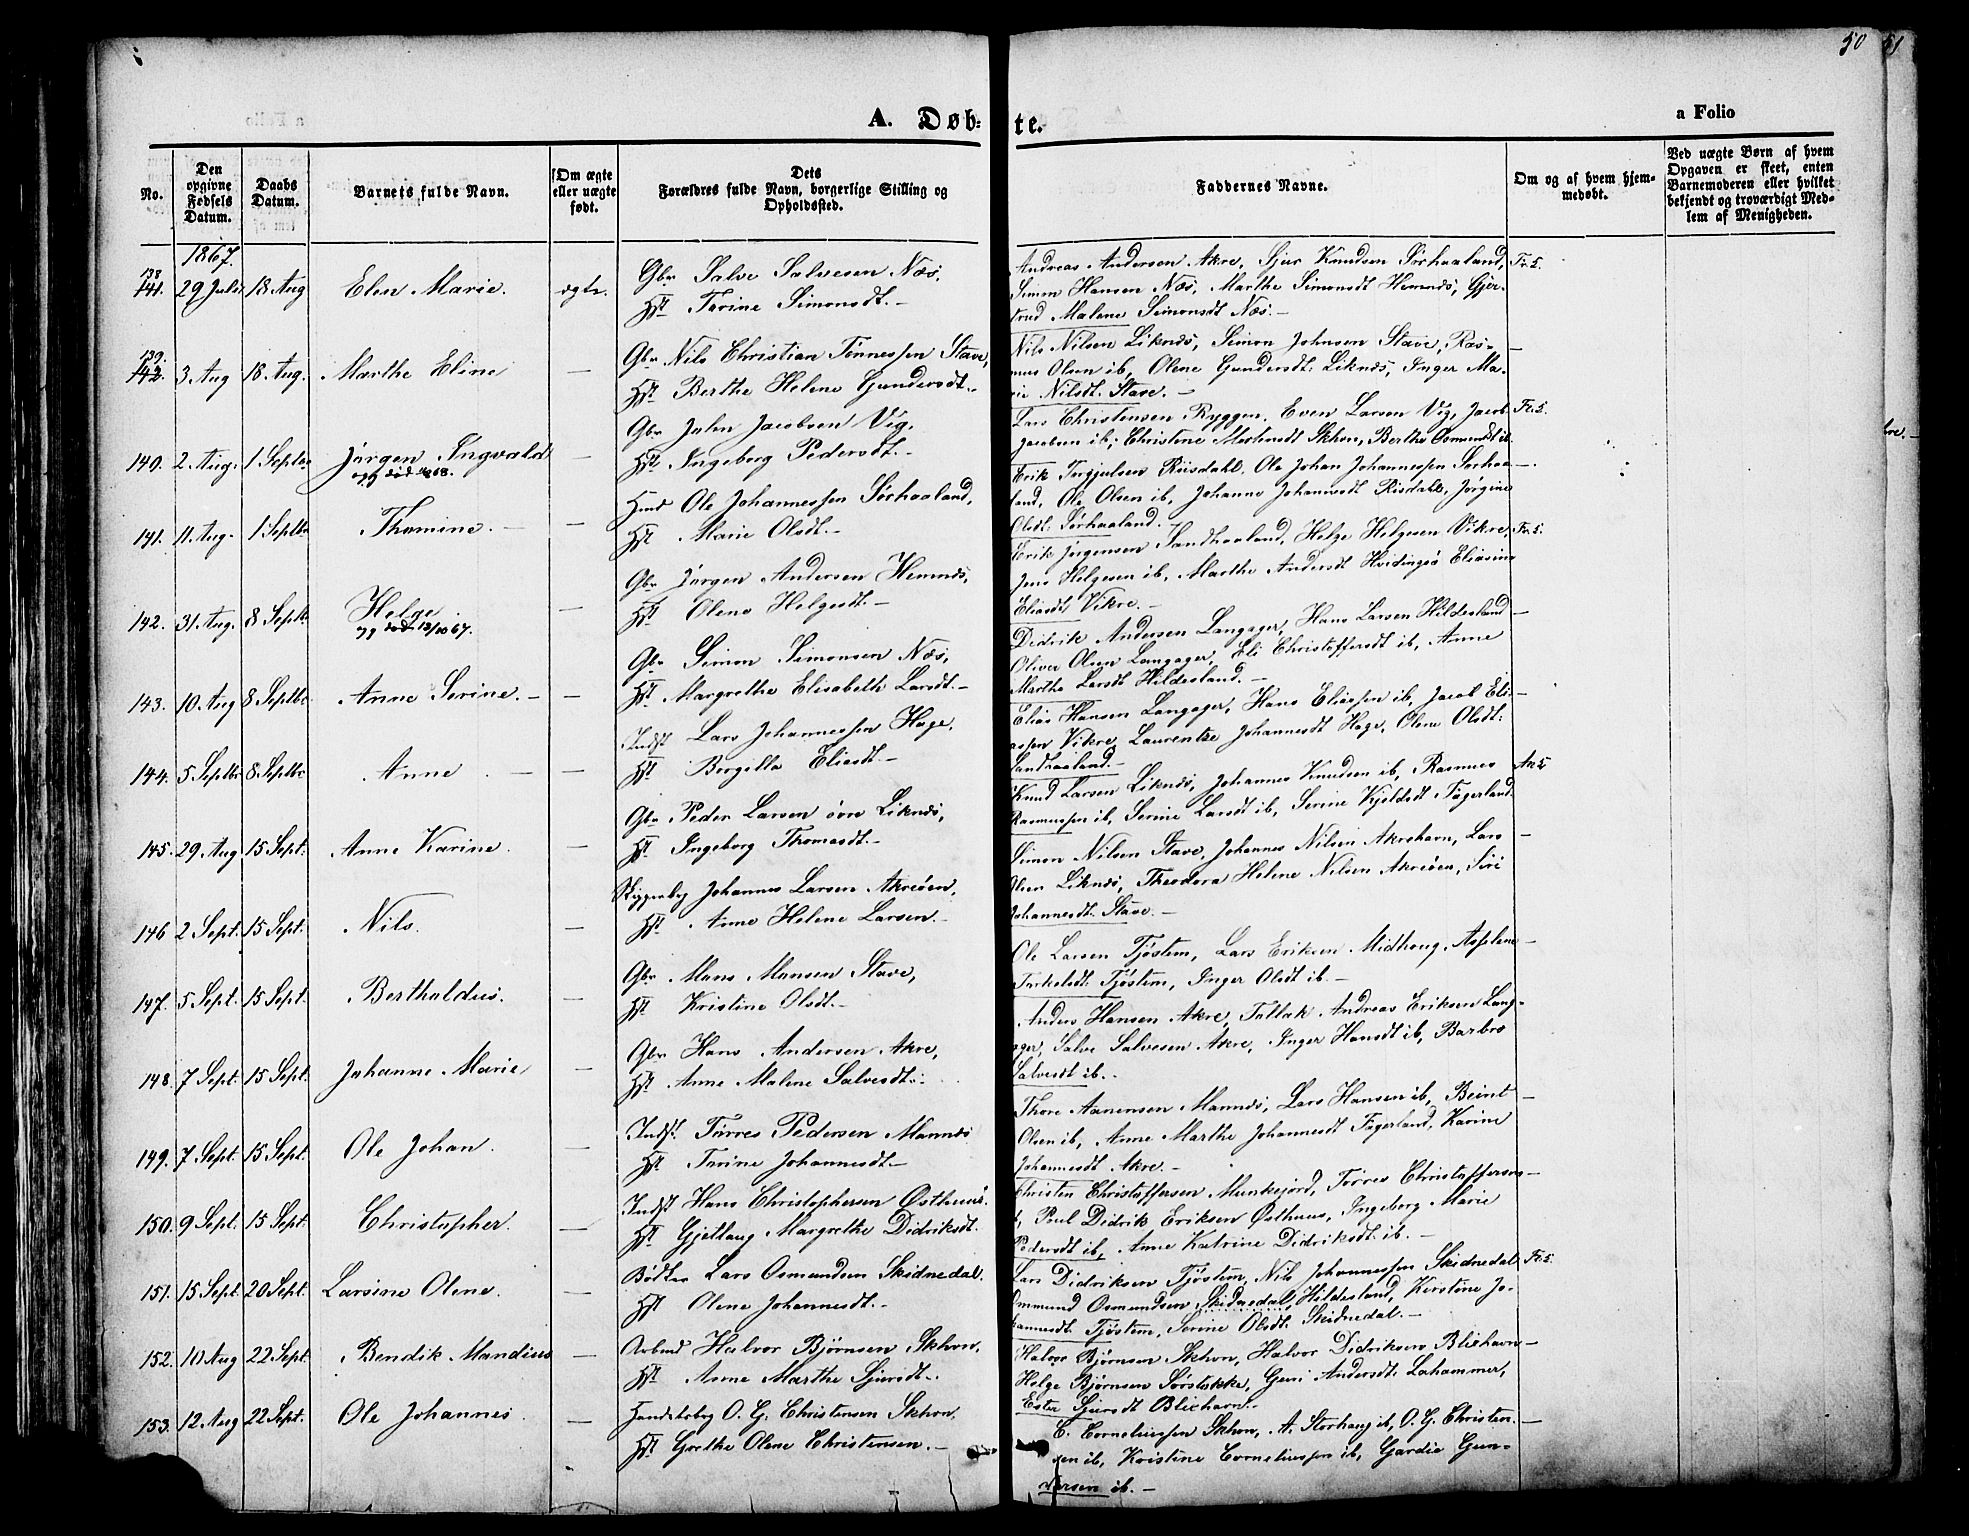 50 51
A. Døb-te.
a Folio
No.
Den opgivne Fødsels Datum.
Daabs Datum.
Barnets fulde Navn.
Om ægte eller uægte født.
Dets Forældres fulde Navn, borgerlige Stilling og Opholdssted.
Faddernes Navne.
Om og af hvem hjem-medøbt.
Ved uægte Børn af hvem Opgaven er skeet, enten Barnemoderen eller hvilket bekjendt og troværdigt Med-lem af Menigheden.
1867.
138 141. 29 Juli 18 Aug Elen Marie. ægte. Gbr Salve Salvesen Næs,
Hst Tarine Simonsdt.-
Andreas Andersen Akre, Sjur Knudsen Sørhaaland, Fr. 5.
Simon Hansen Næs, Marthe Simonsdt Hemnæs, Gjer-
trud Malene Simonsdt Næs.-
139. 142. 3 Aug 18 Aug. Marthe Eline — Gbr Nils Christian Tønnessen Stave,
Hst Berthe Helene Gundersdt.-
Nils Nilsen Liknæs, Simon Johnsen Stave, Ras- —
mus Olsen ib, Olene Gundersdt: Liknæs, Inger Ma-
rie Nilsdt. Stave.-
140. 2 Aug. 1 Septbr Jørgen Ingvald — Gbr John Jacobsen Vig,
Hst Ingeborg Pedersdt.-
Lars Christensen Ryggen, Even Larsen Vig, Jacob Fr. 5.
Jacobsen ib, Christine Osmundsdt ib.
141. 11 Aug. 1 Septbr Thomine. — — Hmd Ole Johannessen Sørhaaland,
Hst Marie Olsdt.-
Erik Risdahl, Ole Johan Johannessen Sørhaa- —
land, Ole Olsen ib, Johanne Johannesdt Risdahl, Jørgine
Olsdt: Sørhaaland.
142. 31 Aug. 8 Septbr Helge — Gbr Jørgen Andersen Hemnæs,
Hst Olene Helgesdt.-
Erik Jørgensen Sandhaaland, Helge Helgesen Vikre, Fr. 5.
Jens Helgesen ib, Marthe Andersdt Hvidingsø Eliasine
Eliasdt Vikre.-
143. 10 Aug 8 Septbr Anne Serine. — — Gbr Simon Simonsen Næs,
Hst Margrethe Elisabeth Larsdt.-
Didrik Andersen Langager, Hans Larsen Hildesland —
Oliver Olsen Langager, Eli Christoffersdt ib, Anne
Marthe Larsdt Hildesland.-
144. 5 Septbr 8 Septbr Anne — — Indst Lars Johannessen Hage,
Hst Bergella Eliasdt.-
Elias Hansen Langager, Hans Eliassen ib, Jacob Eli- —
assen Vikre, Laurentze Johannesdt Hage, Olene Olsdt:
Sandhaaland.-
145. 29 Aug 15 Sept: Anne Karine. — Gbr Peder Larsen øvre Liknæs,
Hst Ingeborg Thomasdt.-
Knud Larsen Liknæs, Johannes Knudsen ib, Rasmus
Rasmussen ib, Serine Larsdt ib, Serine Kjeldsdt Fagerland.
146 2 Sept. 15 Sept. Nils. — Johannes Larsen Akreøen,
Hst Anne Helene Larsen.-
Simon Nilsen Stave, Johannes Nilsen Akrehavn, Lars —
Olsen Liknæs, Theodora Helene Nilsen Akreøen, Siri
Johannesdt. Stave.-
147. 5 Sept. 15 Sept. Berthaldus. — Gbr Mons Monsen Stave,
Hst Kristine Olsdt.-
Ole Larsen Tjøstem, Lars Eriksen Midhoug, —
Torkelsdt. Tjøstem, Inger Olsdt ib.-
148. 7 Sept. 15 Sept. Johanne Marie — Gbr Hans Andersen Akre,
Hst Anne Malene Salvesdt.-
Anders Hansen Akre, Tallak Andreas Eriksen Lang-
ager, Salve Salvesen Akre, Inger Hansdt ib, Barbro
Salvesdt ib.-
149. 7 Sept. 15 Sept. Ole Johan. — Indst. Tørres Pedersen Mannæs
Hst Tarine Johannesdt.-
Thore Aanensen Mannæs, Lars Hansen ib, Beint —
Olsen ib, Anne Marthe Johannesdt Fagerland, Karine
Johannesdt Akre.-
150. 9 Sept. 15 Sept. Christopher. — Indst Hans Christophersen Østhuus.
Hst Gjeltaug Margrethe Didriksdt.
Christen Christoffersen Munkejord, Tørres Christoffersen —
Poul Didrik Eriksen Østhuus, Ingeborg Marie
Pedersdt ib, Anne Katrine Didriksdt ib.-
151. 15 Sept. 20 Sept. Larsine Olene. — Bødker Lars Osmundsen Skidnedal.
Hst Olene Johannesdt.-
Lars Didriksen Tjøstem, Nils Johannessen Skidnedal Fr. 5.
Ommund Osmundsen Skidnedal, Hildesland, Kirstine Jo-
hannesdt. Tjøstem, Serine Olsdt. Skidnedal.-
152. 10 Aug 22 Sept. Bendik Mandius — Arbmd Halvor Bjørnsen Skhvn,
Hst Anne Marthe Sjursdt.-
Halvor Bjørnsen Skhvn, Halvor Didriksen Bliehavn —
Helge Bjørnsen Sørstokke, Guri Andersdt. Lahammer,
Ester Sjursdt Bliehavn.
153. 12 Aug 22 Sept. Ole Johannes. — Handelsbg O. G. Christensen Skhvn.
Hst Grethe Olene Christensen.-
C. Corneliussen Skhvn, A. Storhaug ib, O. G. Christen- —
sen ib, Kristine Corneliussen ib, Gardie Gun-
dersen ib.-